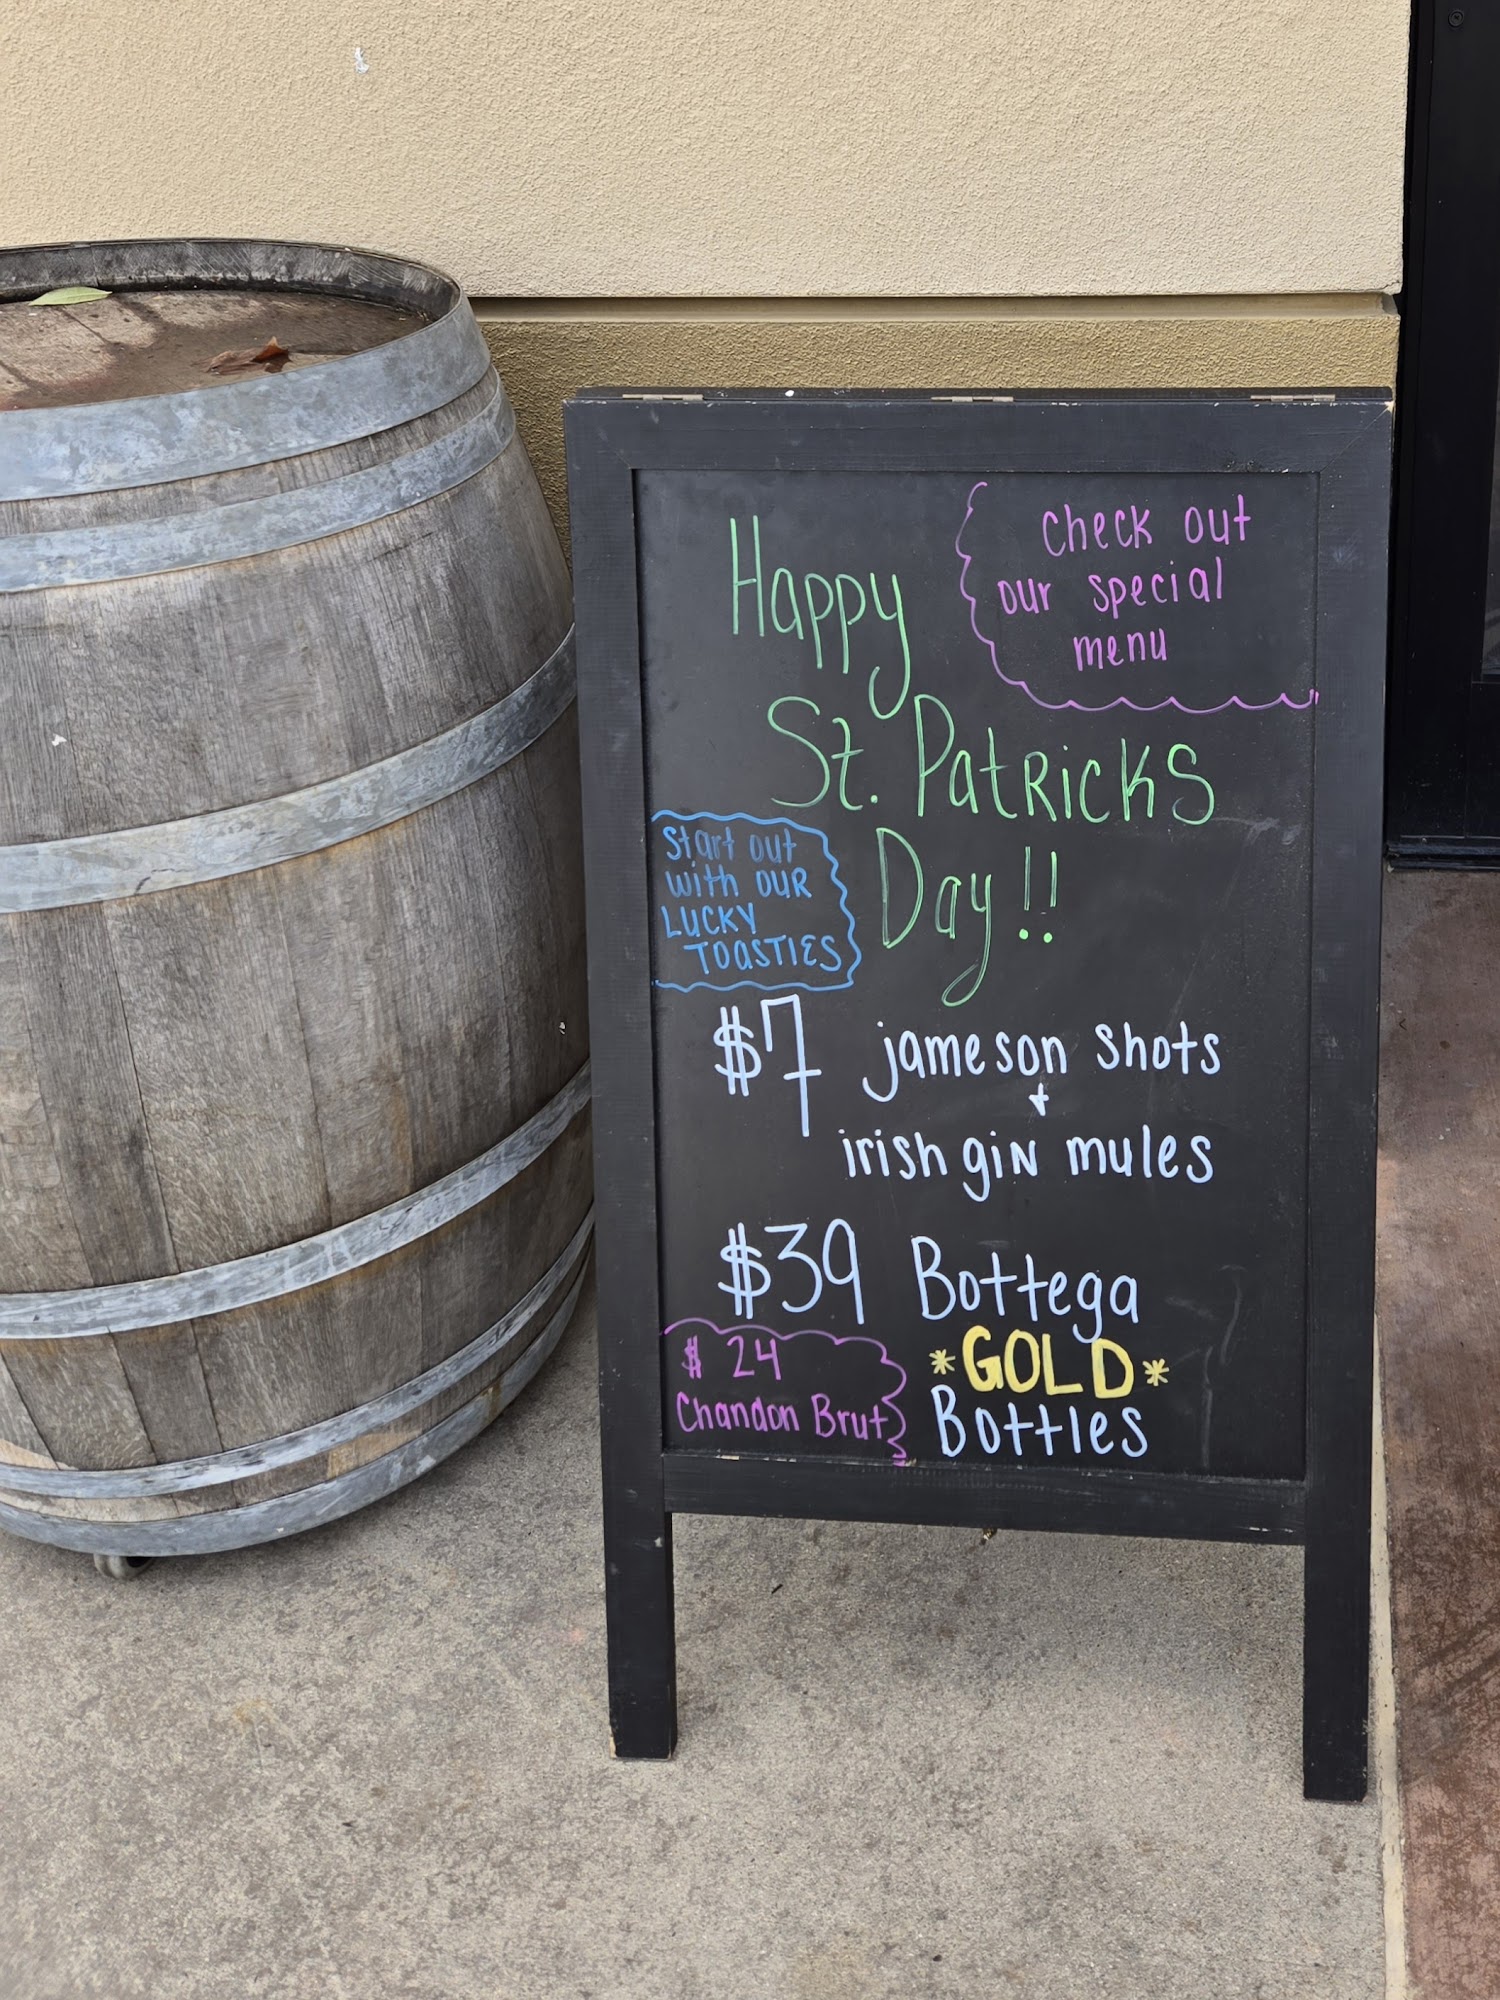 Happy
check out
our special
menu
St. Patricks
Day!!
start out
with our
LUCKY
TOASTIES
$7 jameson shots
+
irish gin mules
$39 Bottega
*GOLD*
Bottles
$24
Chandon Brut